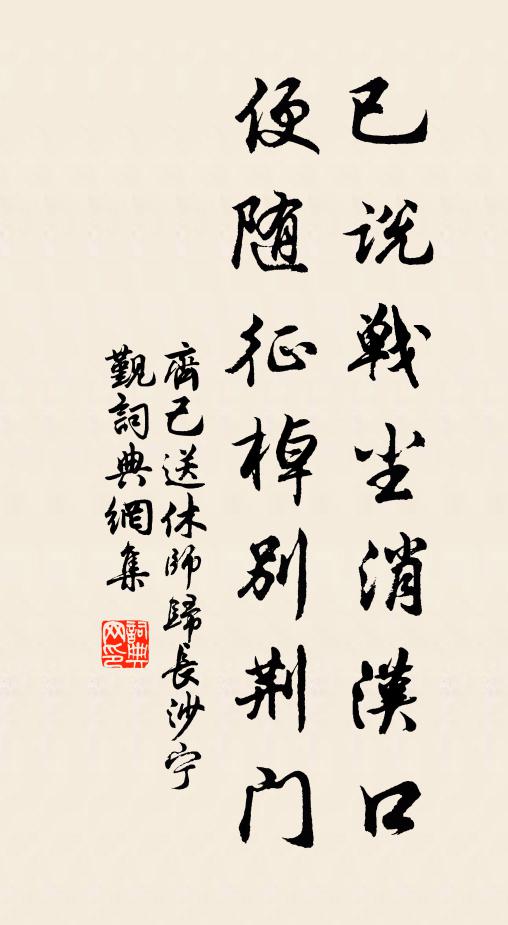 已说戦尘消漢口
便随征棹别荆门
齊己送休師歸長沙宁
覲詞典網集
詞典网印